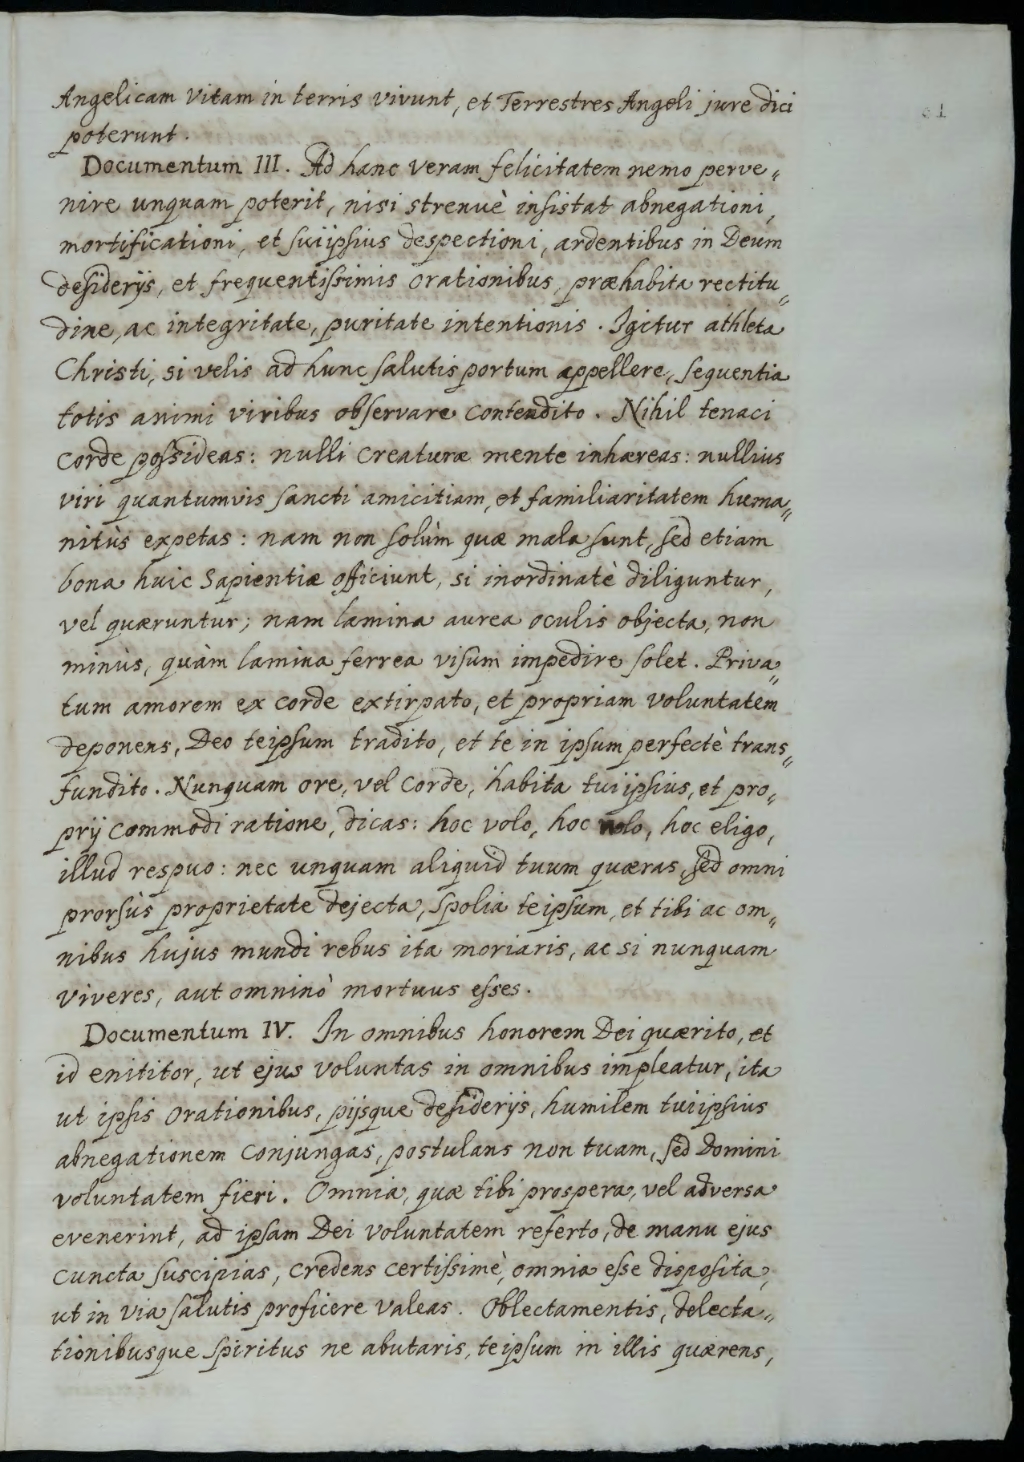 Angelicam vitam in terris vivunt, et Terrestres Angeli jure dici
poterunt.
Documentum III. Ad hanc veram felicitatem nemo perve„
nire unquam poterit, nisi strenuè insistat abnegationi,
mortificationi, et suiipsius despectioni, ardentibus in Deum
desiderijs, et frequentissimis orationibus, præhabita rectitu„
dine, ac integritate, puritate intentionis. Igitur athleta
Christi, si velis ad hunc salutis portum appellere, sequentia
totis animi viribus observare contendito. Nihil tenaci
corde possideas: nulli creaturæ mente inhæreas: nullius
viri quantumvis sancti amicitiam, et familiaritatem huma„
nitùs expetas: nam non solùm quæ mala sunt, sed etiam
bona huic Sapientiæ officiunt, si inordinatè diliguntur,
vel quæruntur; nam lamina aurea oculis objecta, non
minùs, quàm lamina ferrea visum impedire solet. Priva„
tum amorem ex corde extirpato, et propriam voluntatem
deponens, Deo teipsum tradito, et te in ipsum perfectè trans„
fundito. Nunquam ore, vel corde, habita tuiipsius, et pro„
prij commodi ratione, dicas: hoc volo, hoc nolo, hoc eligo,
illud respuo: nec unquam aliquid tuum quæras, sed omni
prorsùs proprietate dejecta, spolia teipsum, et tibi ac om„
nibus hujus mundi rebus ita moriaris, ac si nunquam
viveres, aut omninò mortuus esses.
Documentum IV. In omnibus honorem Dei quærito, et
id enititor, ut ejus voluntas in omnibus impleatur, ita
ut ipsis orationibus, pijsque desiderijs, humilem tuiipsius
abnegationem conjungas, postulans non tuam, sed Domini
voluntatem fieri. Omnia, quæ tibi prospera, vel adversa
evenerint, ad ipsam Dei voluntatem referto, de manu ejus
cuncta suscipias, credens certissimè, omnia esse disposita,
ut in via salutis proficere valeas. Oblectamentis, delecta„
tionibusque spiritus ne abutaris, teipsum in illis quærens,